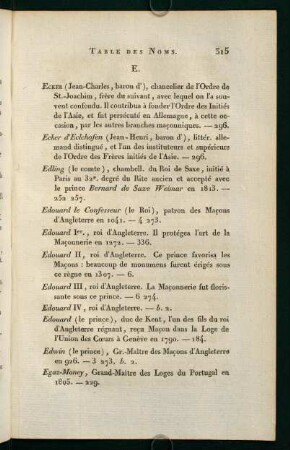 TABLE DES NOMS. 315
E.
ECKER (Jean-Charles, baron d'), chancelier de l'Ordre de
St.-Joachim, frère du suivant, avec lequel on l'a sou-
vent confondu. Il contribua à fonder l'Ordre des Initiés
de l'Asie, et fut persécuté en Allemagne, à cette occa-
sion, par les autres branches maçonniques. — 296.
Ecker d'Eckhofen (Jean-Henri, baron d'), littér. alle-
mand distingué, et l'un des instituteurs et supérieurs
de l'Ordre des Frères initiés de l'Asie. — 296.
Edling (le comte), chambell. du Roi de Saxe, initié à
Paris au 32e. degré du Rite ancien et accepté avec
le prince Bernard de Saxe Weimar en 1813. —
252 257.
Edouard le Confesseur (le Roi), patron des Maçons
d'Angleterre en 1041. — 4 273.
Edouard Ier., roi d'Angleterre. Il protégea l'art de la
Maçonnerie en 1272. — 336.
Edouard II, roi d'Angleterre. Ce prince favorisa les
Maçons : beaucoup de monumens furent érigés sous
ce règne en 1307. — 6.
Edouard III, roi d'Angleterre. La Maçonnerie fut floris-
sante sous ce prince. — 6 274.
Edouard IV, roi d'Angleterre. — b. 2.
Edouard (le prince), duc de Kent, l'un des fils du roi
d'Angleterre régnant, reçu Maçon dans la Loge de
l'Union des Cœurs à Genève en 1790. — 184.
Edwin (le prince), Gr.-Maître des Maçons d'Angleterre
en 926. — 3 273, b. 2.
Egaz-Money, Grand-Maître des Loges du Portugal en
1805. — 229.